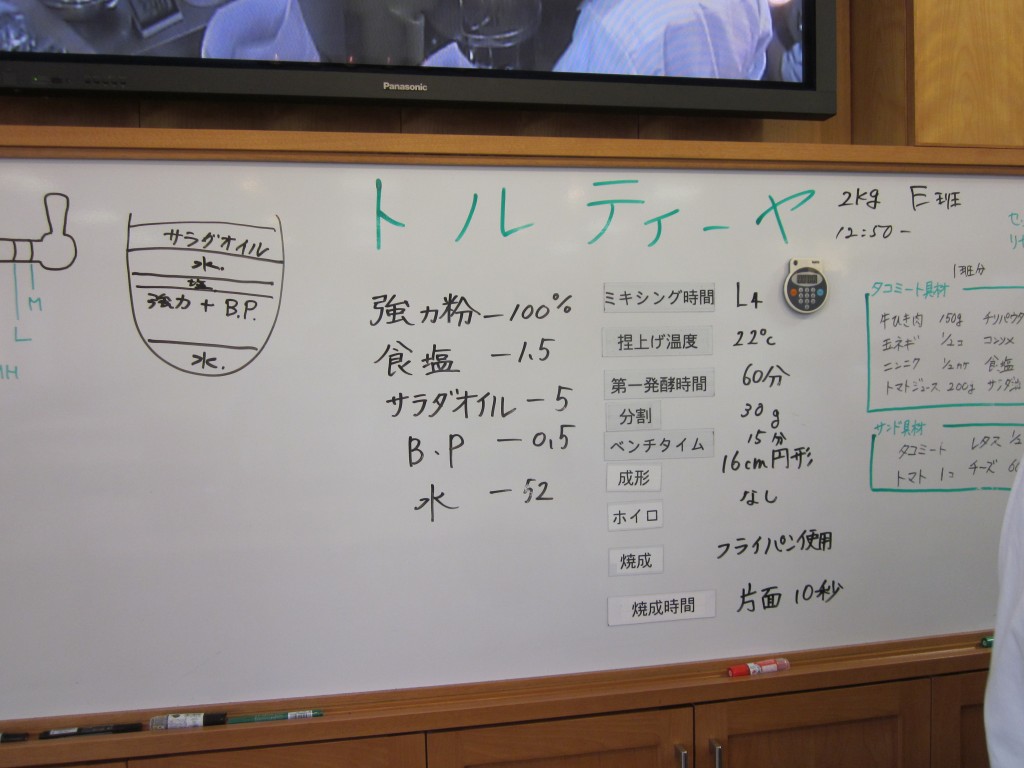 Panasonic
トルティーヤ
2kg E班
12:50-
サラダオイル
水.
塩
強力 + B.P.
水.
M
L
強力粉-100%
食塩 -1.5
サラダオイル-5
B.P -0.5
水 -52
ミキシング時間 L4
捏上げ温度 22℃
第一発酵時間 60分
分割 30g
ベンチタイム 15分
成形 16cm円形
ホイロ なし
焼成 フライパン使用
焼成時間 片面10秒
1班分
タコミート具材
牛ひき肉 150g チリパウダ
玉ネギ 1/2コ コンソメ
ニンニク 食塩
トマトジュース 200g
サンド具材
タコミート レタス 1/2
トマト 1コ チーズ